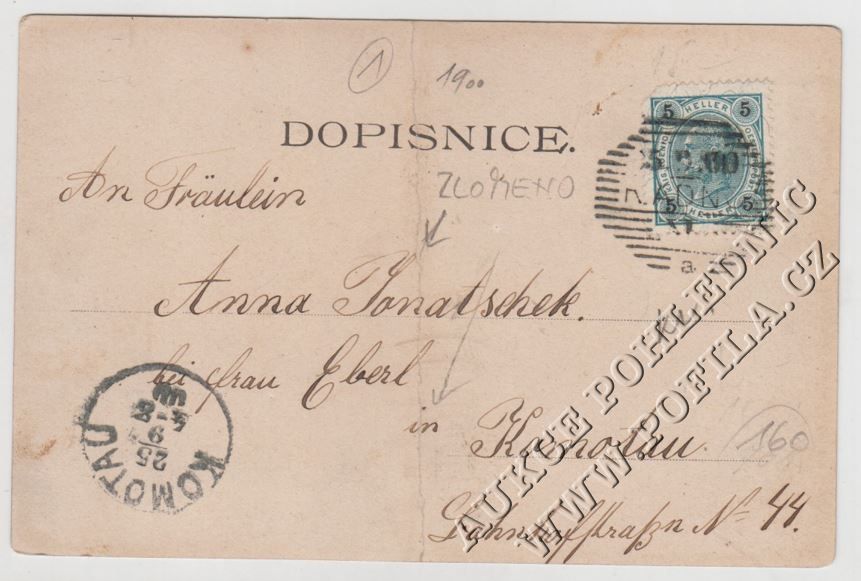 1
1900
DOPISNICE.
5 HELLER 5
2 00
5 HELLER 5
a
An Fräulein
ZLOMENO
Anna Jonatschek.
bei Frau Eberl
in
Komotau.
160
Bahnhofstraße № 44.
KOMOTAU
25
9
AUKCE POHLEDNIC
WWW.POFILA.CZ